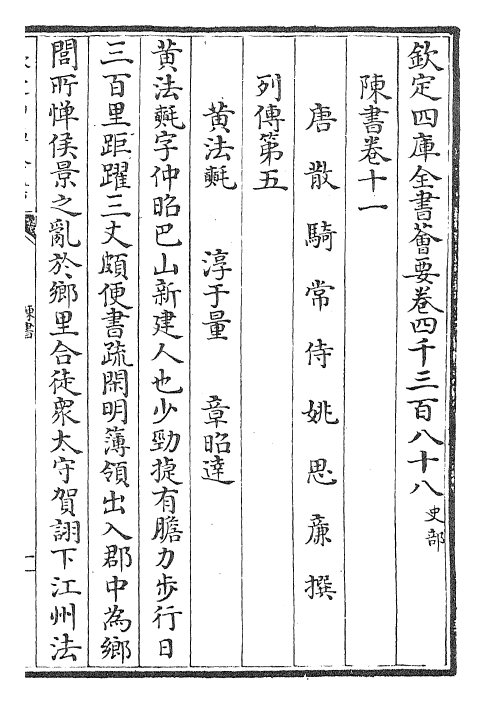 欽定四庫全書薈要卷四千三百八十八 史部
陳書卷十一
唐散騎常侍姚思廉撰
列傳第五
黄法𣰰 淳于量 章昭達
黄法𣰰字仲昭巴山新建人也少勁捷有膽力步行日
三百里距躍三丈頗便書疏閑明簿領出入郡中為鄉
閭所憚侯景之亂於鄉里合徒衆太守賀詡下江州法
陳書